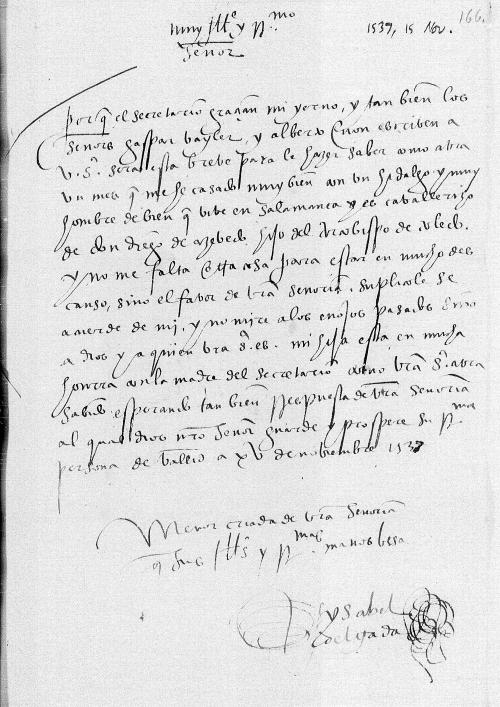 166.
muy Ill.e y R.mo 1537, 15 Nov.
Señor
porq el secretario granan mi yerno, y tan bien los
señores gaspar y alberto Cuon escriben a
v. s. sera esta breve para le hazer saber como abra
un mes q me he casado muy bien con un hidalgo y muy
hombre de bien q vive en salamanca y es cavallerizo
de don diego de azebedo hijo del arcobispo de toledo.
y no me falta otra cosa para estar en mucho des
canso, sino el fabor de vra señoria. suplicole se
acuerde de mi, y no mire a los enojos pasados sino
a dios y a quien vra s. es. mi hija esta en mucha
honrra con la madre del secretario como vra s. abra
sabido esperando tan bien respuesta de vra señoria
al qual dios nro señor guarde y prospere su R.ma
persona de valld a xv de noviembre 1537
Menor criada de vra señoria
q sus Ill.s y R.mas manos besa
ysabel
delgada